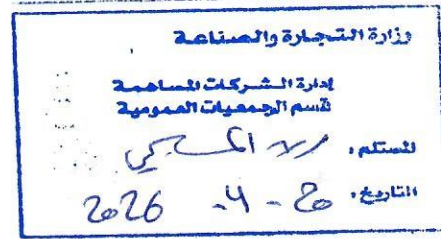 وزارة التجارة والصناعة
إدارة الشركات المساهمة
قسم الجمعيات العمومية
المستلم:
التاريخ: 20 - 4 - 2026